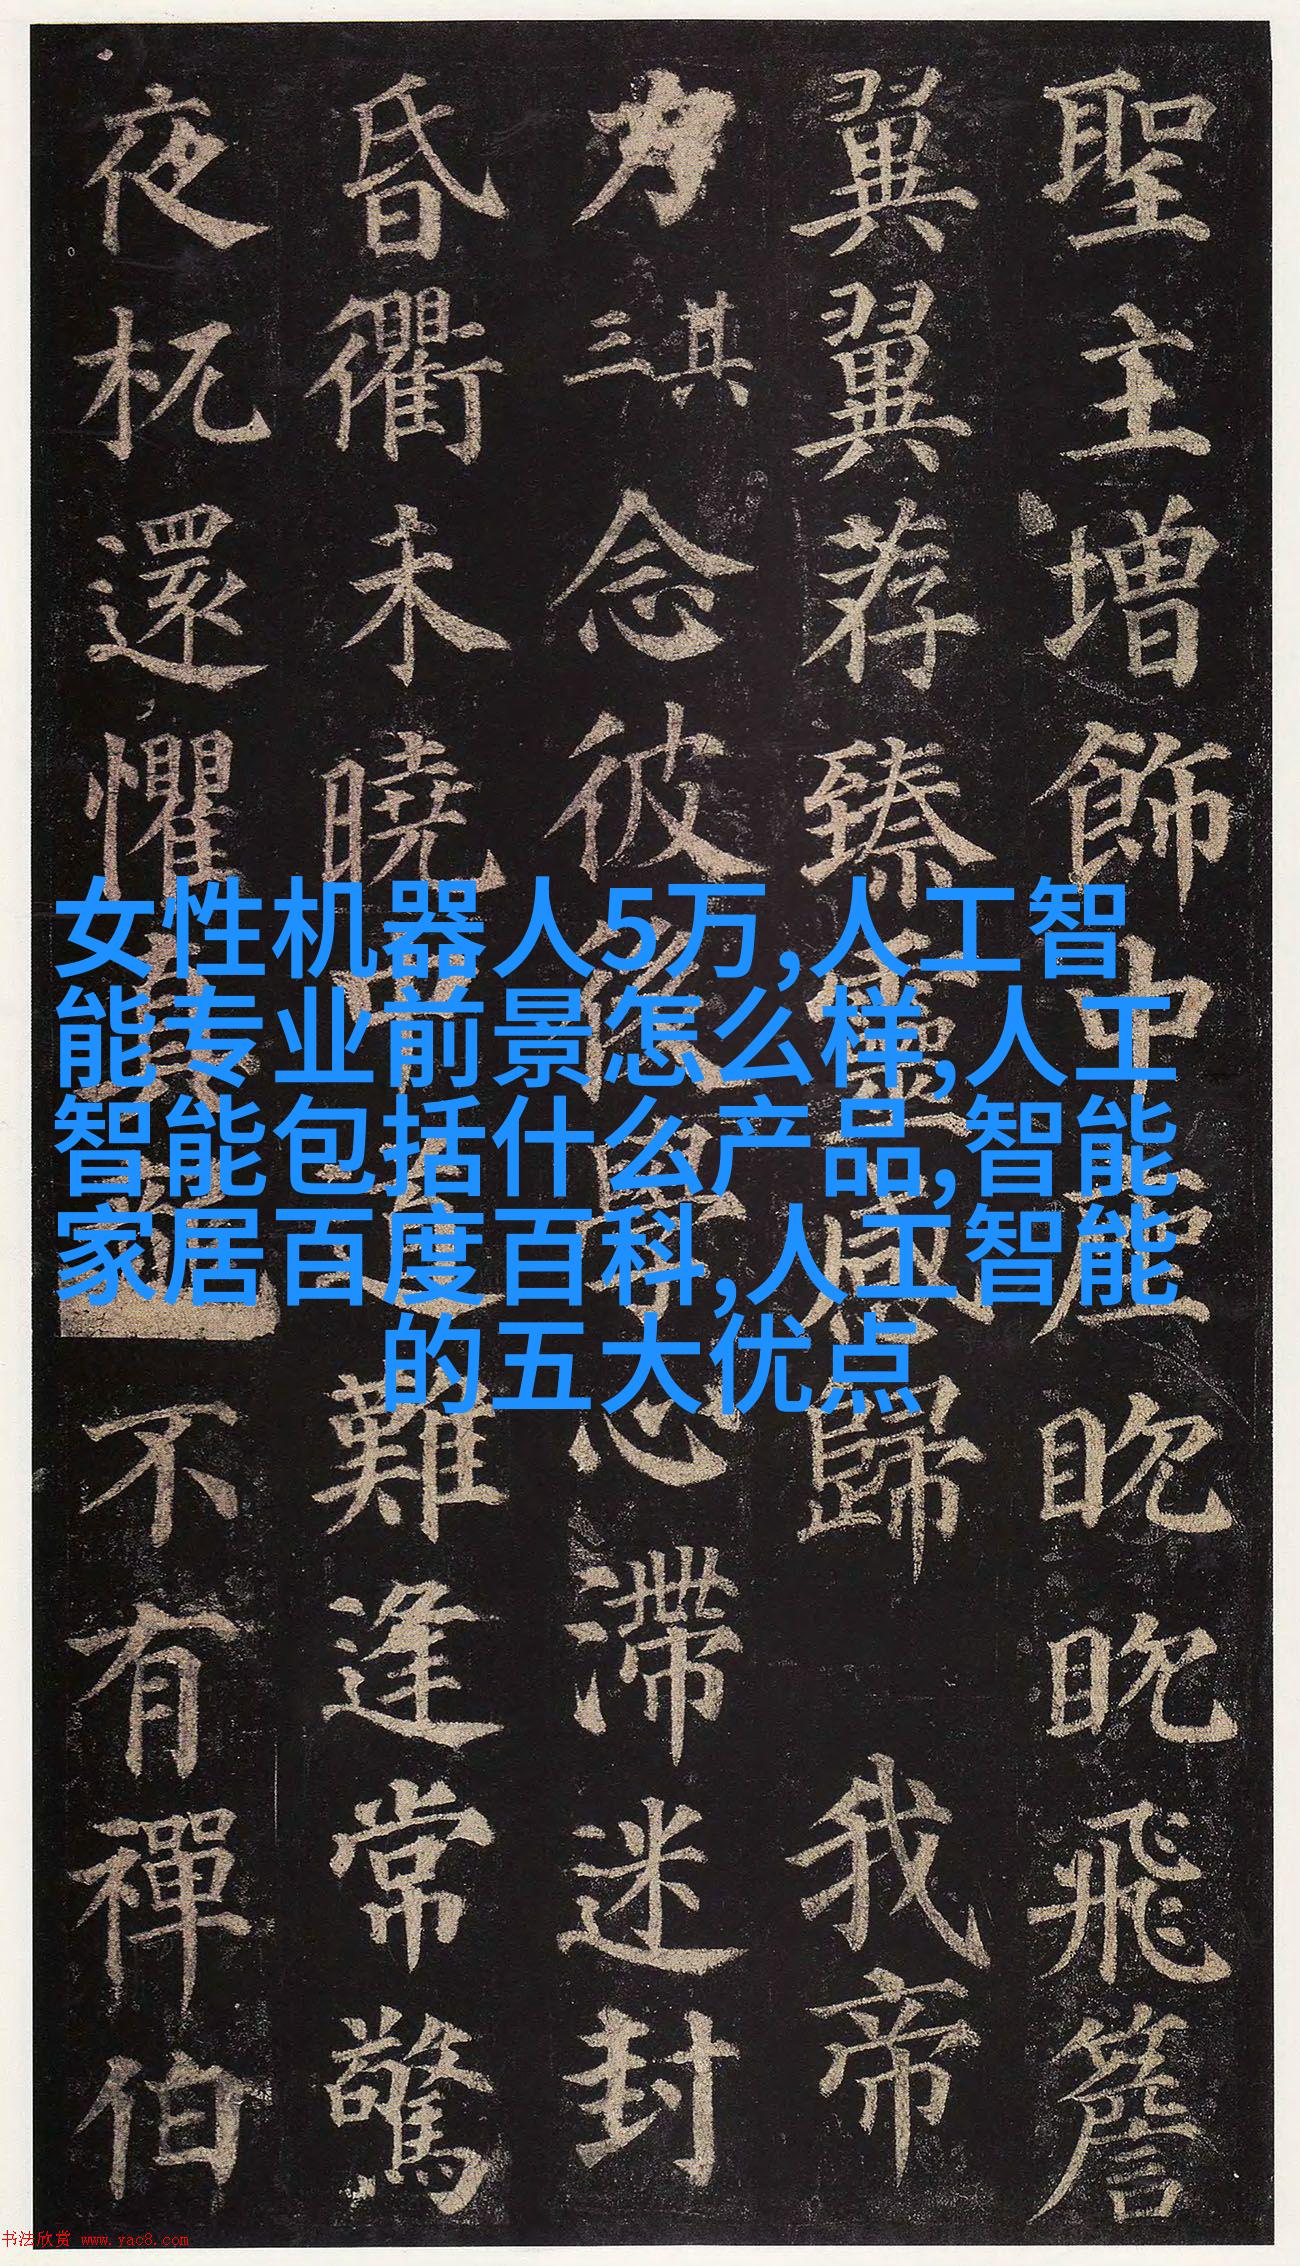 聖主增飾中座眈眈飛簷
翼翼荐臻靈感歸我帝
力其三念彼後學心滯迷封
昏衢未曉中道難逢常驚
夜杌還懼真龍不有禪伯
女性机器人5万,人工智
能专业前景怎么样,人工
智能包括什么产品,智能
家居百度百科,人工智能
的五大优点
书法欣赏 www.yac8.com